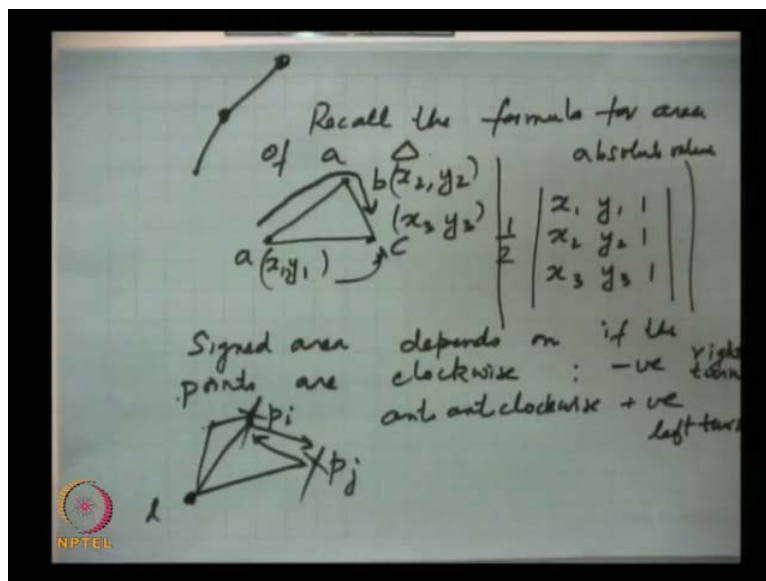 Recall the formula for area
of a △ absolute value
b(x₂, y₂)
(x₃ y₃)
a(x₁y₁) c
| 1/2 | x₁ y₁ 1 | |
x₂ y₂ 1
x₃ y₃ 1
Signed area depends on if the
points are clockwise : -ve right turn
anti anticlockwise +ve
left turn
pi
pj
l
NPTEL